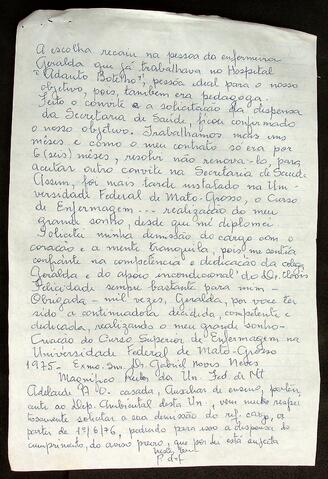 A escolha recaiu na pessoa da enfermeira
Geralda que já trabalhava no Hospital
"Adauto Botelho", pessôa ideal para o nosso
objetivo, pois, também era pedagoga.
Feito o convite e a solicitação da dispensa
da Secretaria de Saúde, ficou confirmado
o nosso objetivo. Trabalhamos mais uns
mêses e cômo o meu contrato só era por
6 (seis) mêses, resolvi não renova-lo, para
aceitar outro convite na Secretaria de Saúde
Assim, foi mais tarde instalado na Uni-
versidade Federal de Mato-Grosso, o Curso
de Enfermagem --- realização do meu
grande sonho, desde que me diplomei
Solicitei minha demissão do cargo com o
coração e a mente tranquila, pois me sentia
confiante na competência e dedicação da colega
Geralda e do apoio incondicional do Dr. Clóvis
Felicidade sempre bastante para mim -
Obrigada - mil vezes, Geralda, por voce ter
sido a continuadora decidida, competente e
dedicada, realizando o meu grande sonho -
Criação do Curso Superior de Enfermagem na
Universidade Federal de Mato-Grosso
1975 - Exmo. Snr. Dr. Gabriel Novis Neves
Magnífico Reitor da Un. Fed. de MT
Adelaide casada, Auxiliar de ensino, perten-
cente ao Dep. Ambiental desta Un, vem mui respei
tosamente solicitar a sua demissão do ref. cargo, a
partir de 1º/6/76, pedindo para isso a dispensa do
cumprimento, do aviso previo, que por lei está sujeita